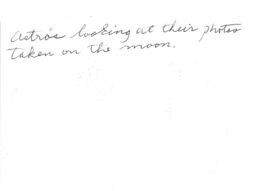 Astro's looking at their photos
taken on the moon.